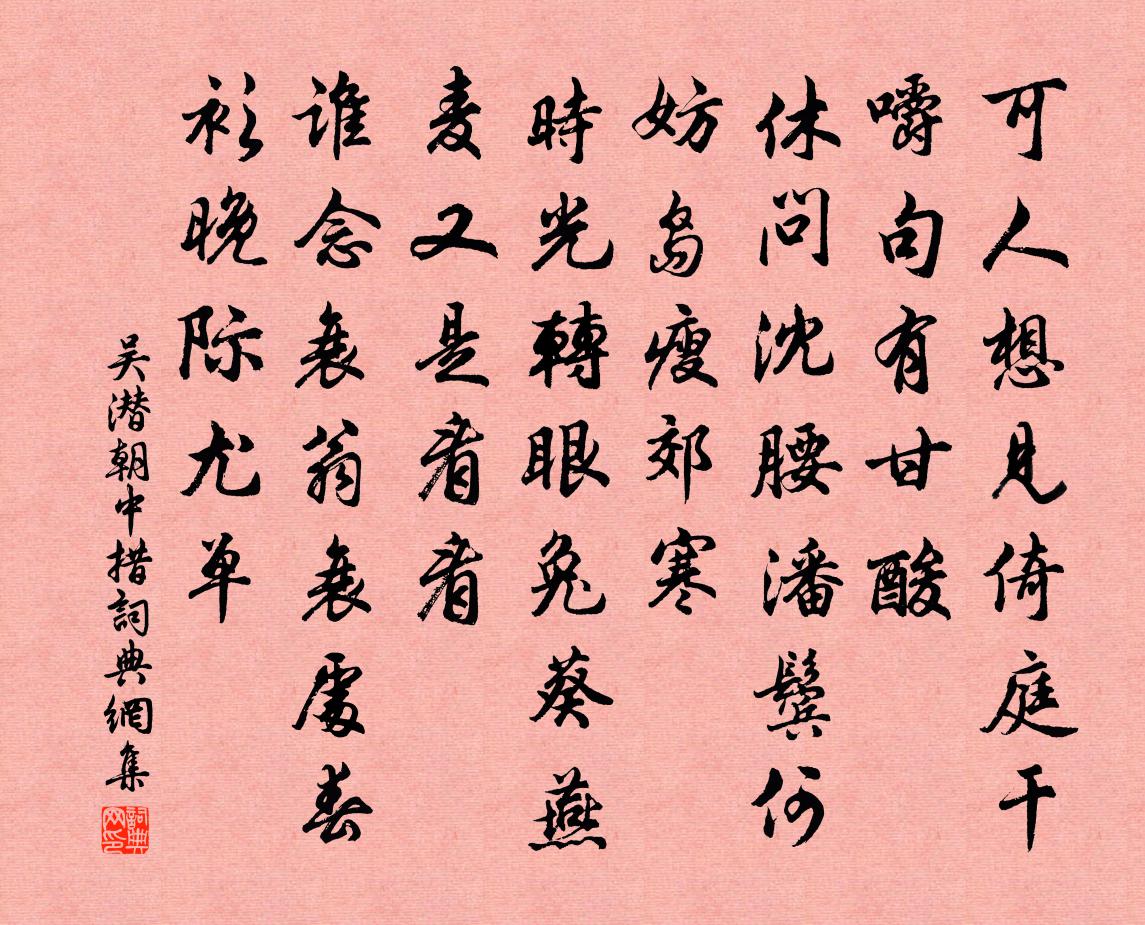 可人想見倚庭干
嚼句有甘酸
休問沈腰潘鬓何
妨島瘦郊寒
時光轉眼兔葵燕
麦又是看看
谁念衰翁衰處春
衫晚际尤单
吴潜朝中措詞典網集
詞典网印